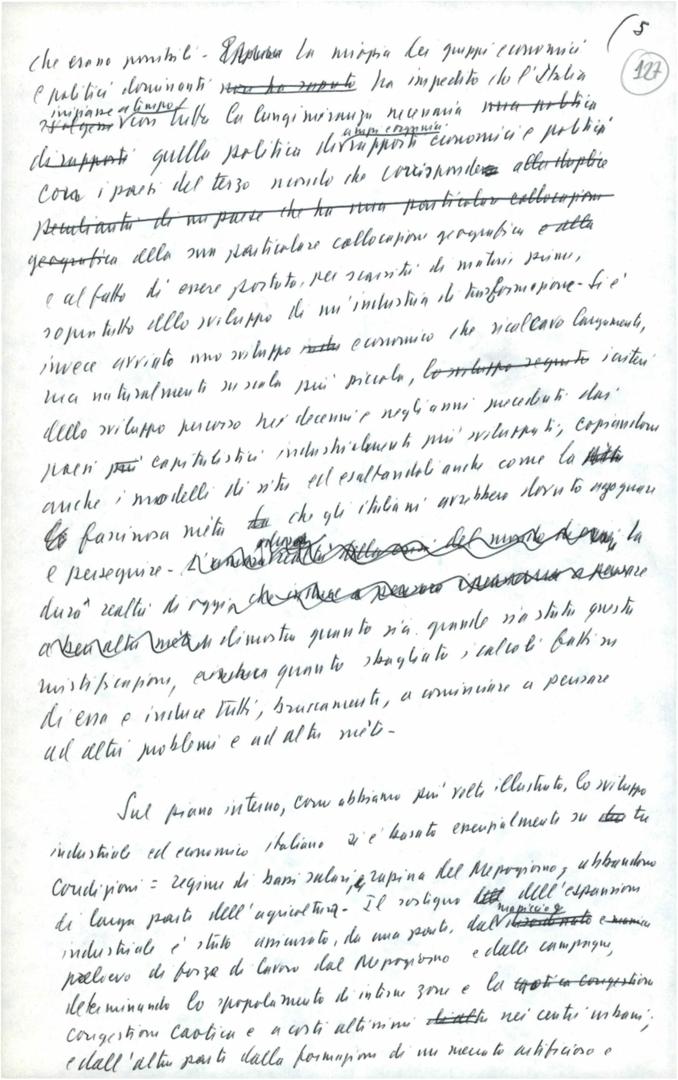 5
127
che erano possibili - La miopia dei gruppi economici
e politici dominanti non ha saputo ha impedito che l'Italia
impiegasse a tempo con tutta la lungimiranza necessaria una politica
di rapporti quella politica di ampi e organici rapporti economici e politici
con i paesi del terzo mondo che corrisponde alla duplice
peculiarità di un paese che ha una particolare collocazione
geografica alla sua particolare collocazione geografica e alla
e al fatto di essere portata, per scarsità di materie prime,
soprattutto allo sviluppo di un'industria di trasformazione - Si è
invece avviato uno sviluppo economico che ricalcava largamente,
ma naturalmente su scala più piccola, lo sviluppo seguito i criteri
dello sviluppo percorso nei decenni e negli anni precedenti dai
paesi più capitalistici industrialmente più sviluppati, copiandone
anche i modelli di vita ed esaltandoli anche come la
fascinosa mèta che gli italiani avrebbero dovuto agognare
e perseguire - la
dura realtà di oggi che induce a pensare
a ben altre mète dimostra quanto sia grande sia stata questa
mistificazione, quanto sbagliati i calcoli fatti su
di essa e induce tutti, bruscamente, a cominciare a pensare
ad altri problemi e ad altre mète -
Sul piano interno, come abbiamo più volte illustrato, lo sviluppo
industriale ed economico italiano si è basato essenzialmente su tre
condizioni = regime di bassi salari, rapina del Mezzogiorno, abbandono
di larga parte dell'agricoltura - Il sostegno dell'espansione
industriale è stato assicurato, da una parte, dal massiccio e
prelievo di forza di lavoro dal Mezzogiorno e dalle campagne,
determinando lo spopolamento di intere zone e la caotica congestione
congestione caotica e a costi altissimi nei centri urbani;
e dall'altra parte dalla formazione di un mercato artificioso e